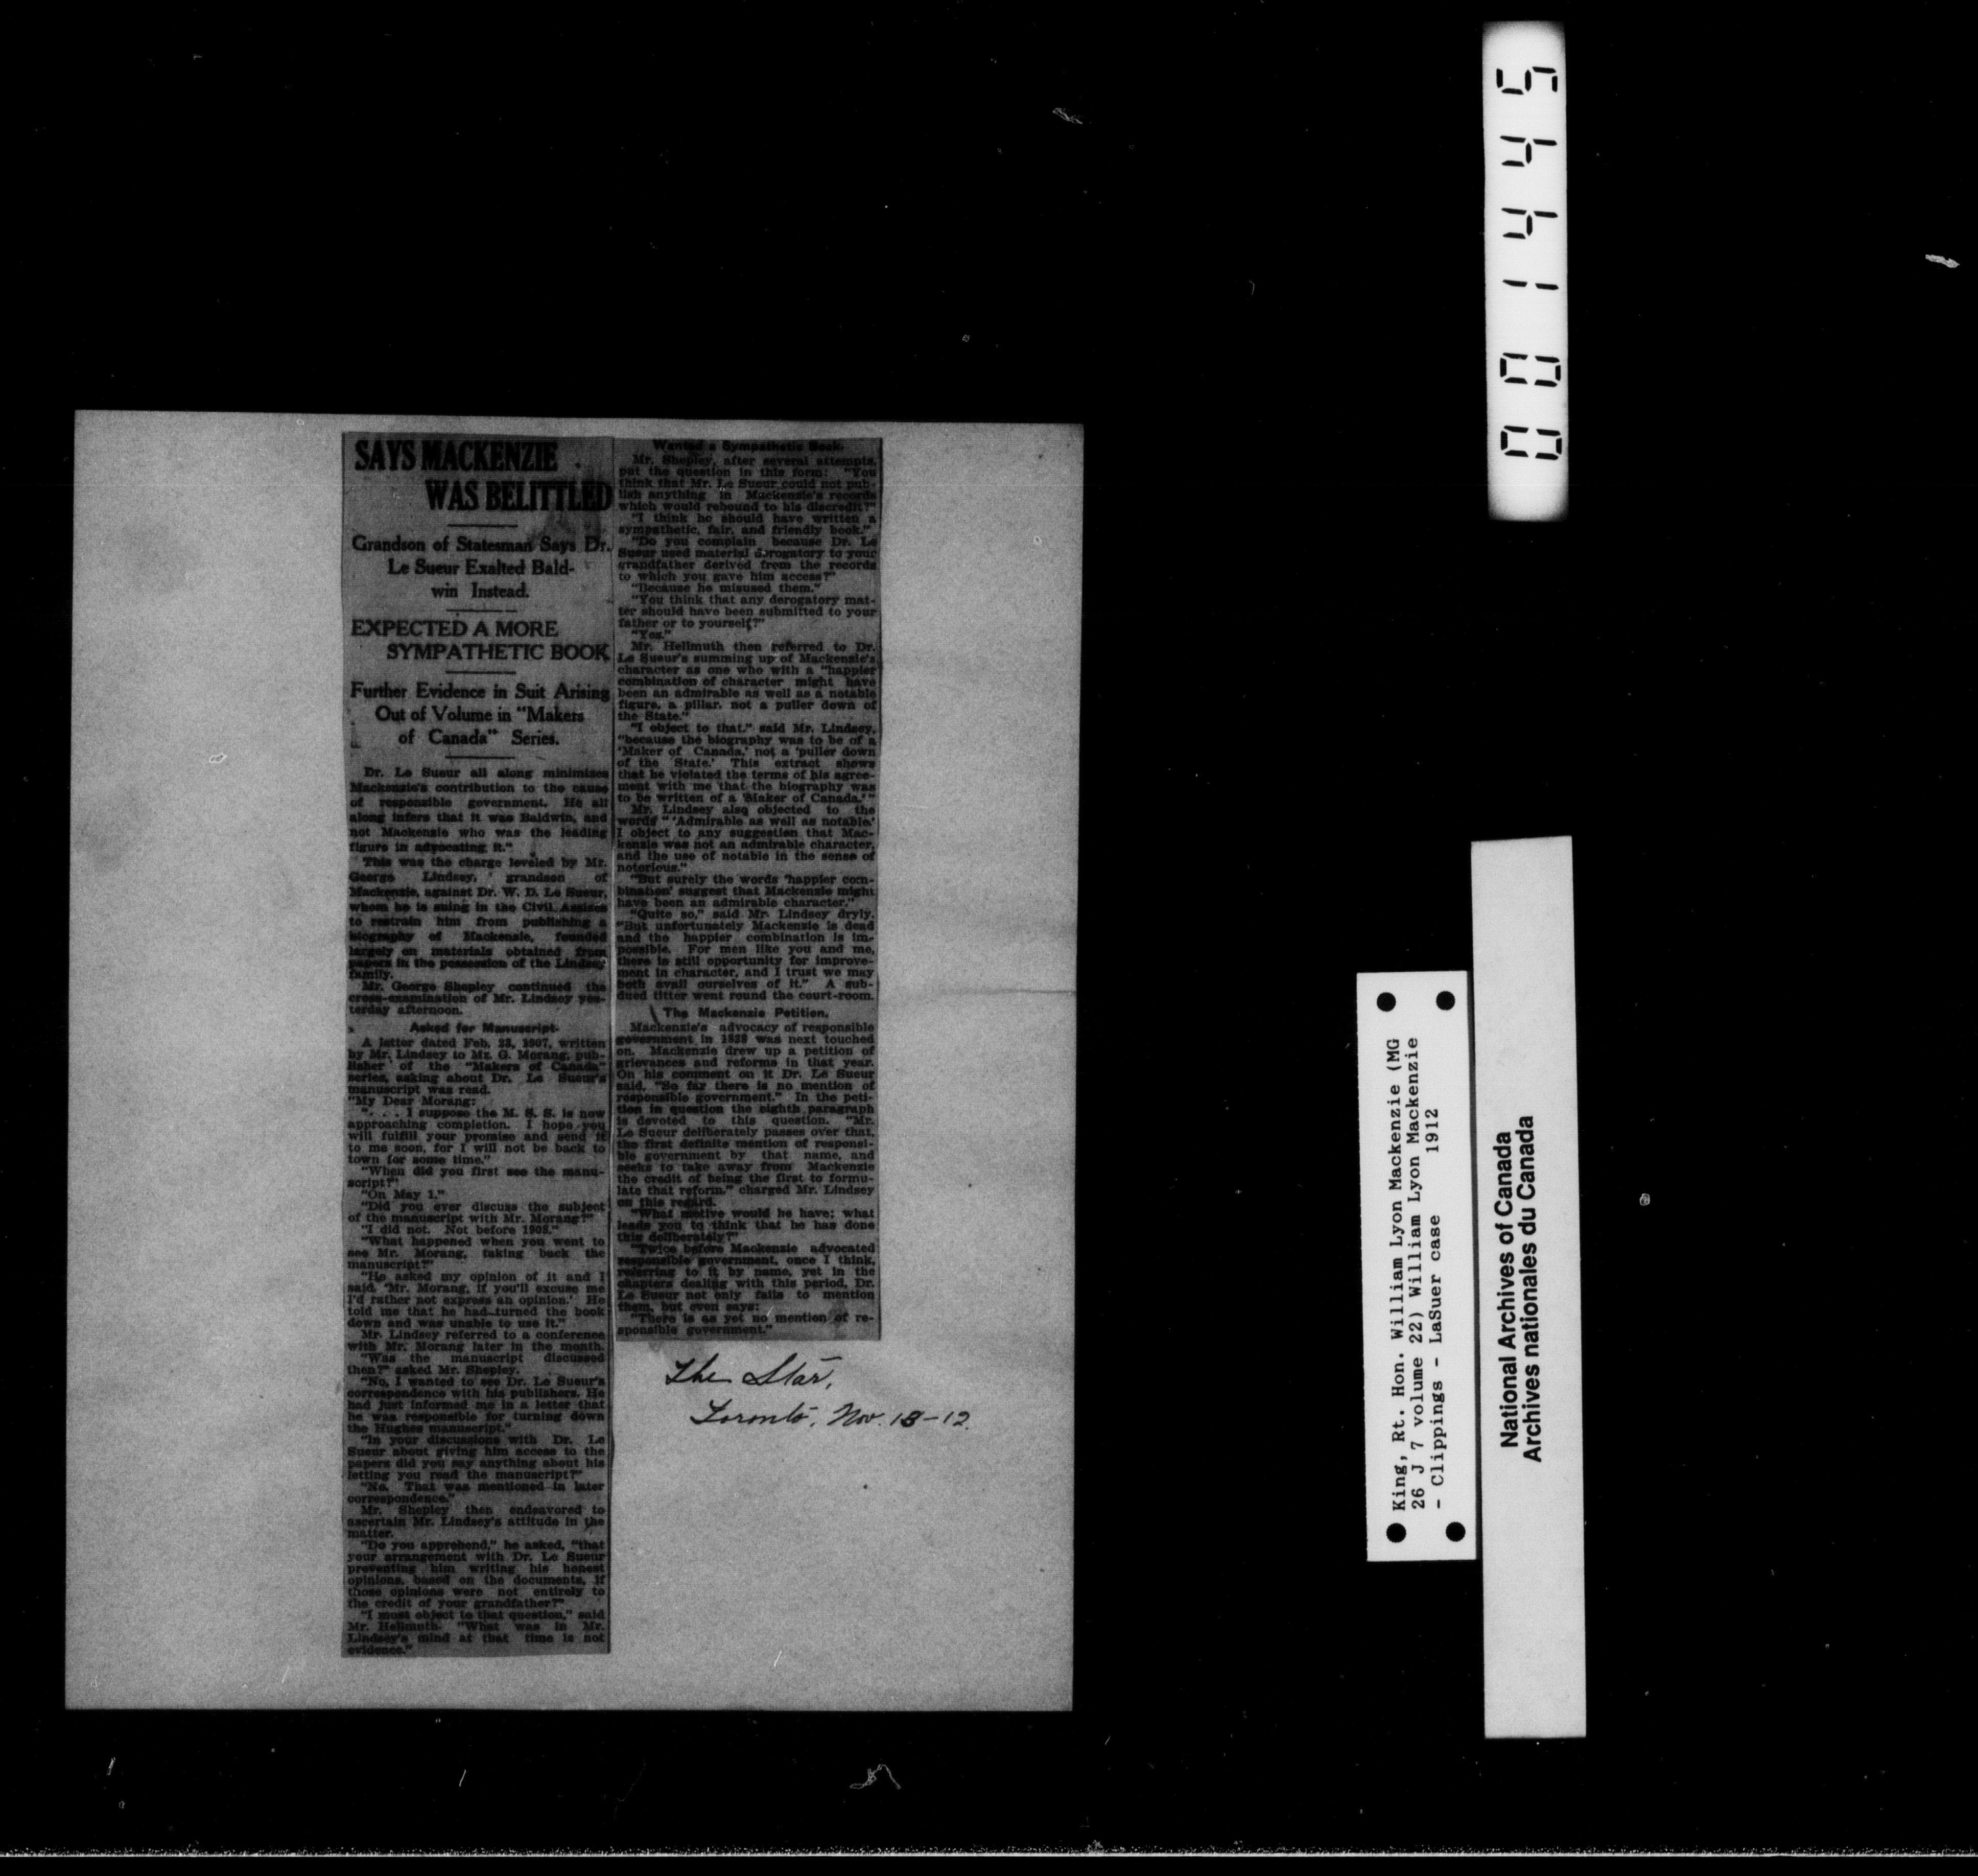 SAYS MACKENZIE
WAS BELITTLED
Grandson of Statesman Says Dr.
Le Sueur Exalted Bald-
win Instead.
EXPECTED A MORE
SYMPATHETIC BOOK
Further Evidence in Suit Arising
Out of Volume in "Makers
of Canada" Series.
Dr. Le Sueur all along minimizes
Mackenzie's contribution to the cause
of responsible government. He all
along infers that it was Baldwin, and
not Mackenzie who was the leading
figure in advocating it."
This was the charge leveled by Mr.
George Lindsey, grandson of
Mackenzie, against Dr. W. D. Le Sueur,
whom he is suing in the Civil Assizes
to restrain him from publishing a
biography of Mackenzie, founded
largely on materials obtained from
papers in the possession of the Lindsey
family.
Mr. George Shepley continued the
cross-examination of Mr. Lindsey yes-
terday afternoon.
Asked for Manuscript.
A letter dated Feb. 23, 1907, written
by Mr. Lindsey to Mr. G. Morang, pub-
lisher of the "Makers of Canada"
series, asking about Dr. Le Sueur's
manuscript was read.
"My Dear Morang:
". . . I suppose the M. S. S. is now
approaching completion. I hope you
will fulfill your promise and send it
to me soon, for I will not be back to
town for some time."
"When did you first see the manu-
script?"
"On May 1."
"Did you ever discuss the subject
of the manuscript with Mr. Morang?"
"I did not. Not before 1908."
"What happened when you went to
see Mr. Morang, taking back the
manuscript?"
"He asked my opinion of it and I
said, 'Mr. Morang, if you'll excuse me
I'd rather not express an opinion.' He
told me that he had turned the book
down and was unable to use it."
Mr. Lindsey referred to a conference
with Mr. Morang later in the month.
"Was the manuscript discussed
then?" asked Mr. Shepley.
"No, I wanted to see Dr. Le Sueur's
correspondence with his publishers. He
had just informed me in a letter that
he was responsible for turning down
the Hughes manuscript."
"In your discussions with Dr. Le
Sueur about giving him access to the
papers did you say anything about his
letting you read the manuscript?"
"No. That was mentioned in later
correspondence."
Mr. Shepley then endeavored to
ascertain Mr. Lindsey's attitude in the
matter.
"Do you apprehend," he asked, "that
your arrangement with Dr. Le Sueur
preventing him writing his honest
opinions, based on the documents, if
those opinions were not entirely to
the credit of your grandfather?"
"I must object to that question," said
Mr. Hellmuth. "What was in Mr.
Lindsey's mind at that time is not
evidence."
Wanted a Sympathetic Book.
Mr. Shepley, after several attempts,
put the question in this form: "You
think that Mr. Le Sueur could not pub-
lish anything in Mackenzie's records
which would rebound to his discredit?"
"I think he should have written a
sympathetic, fair, and friendly book."
"Do you complain because Dr. Le
Sueur used material derogatory to your
grandfather derived from the records
to which you gave him access?"
"Because he misused them."
"You think that any derogatory mat-
ter should have been submitted to your
father or to yourself?"
"Yes."
Mr. Hellmuth then referred to Dr.
Le Sueur's summing up of Mackenzie's
character as one who with a "happier
combination of character might have
been an admirable as well as a notable
figure, a pillar, not a puller down of
the State."
"I object to that," said Mr. Lindsey,
"because the biography was to be of a
'Maker of Canada,' not a 'puller down
of the State.' This extract shows
that he violated the terms of his agree-
ment with me that the biography was
to be written of a 'Maker of Canada.'"
Mr. Lindsey also objected to the
words " 'Admirable as well as notable.'
I object to any suggestion that Mac-
kenzie was not an admirable character,
and the use of notable in the sense of
notorious."
"But surely the words 'happier com-
bination' suggest that Mackenzie might
have been an admirable character."
"Quite so," said Mr. Lindsey dryly.
"But unfortunately Mackenzie is dead
and the happier combination is im-
possible. For men like you and me,
there is still opportunity for improve-
ment in character, and I trust we may
both avail ourselves of it." A sub-
dued titter went round the court-room.
The Mackenzie Petition.
Mackenzie's advocacy of responsible
government in 1828 was next touched
on. Mackenzie drew up a petition of
grievances and reforms in that year.
On his comment on it Dr. Le Sueur
said, "So far there is no mention of
responsible government." In the peti-
tion in question the eighth paragraph
is devoted to this question. "Mr.
Le Sueur deliberately passes over that,
the first definite mention of responsi-
ble government by that name, and
seeks to take away from Mackenzie
the credit of being the first to formu-
late that reform," charged Mr. Lindsey
on this regard.
"What motive would he have; what
leads you to think that he has done
this deliberately?"
"Twice before Mackenzie advocated
responsible government, once I think,
referring to it by name, yet in the
chapters dealing with this period, Dr.
Le Sueur not only fails to mention
them, but even says:
"There is as yet no mention of re-
sponsible government."
The Star,
Toronto, Nov. 18-12.
001445
King, Rt. Hon. William Lyon Mackenzie (MG
26 J 7 volume 22) William Lyon Mackenzie
- Clippings - LaSuer case 1912
National Archives of Canada
Archives nationales du Canada